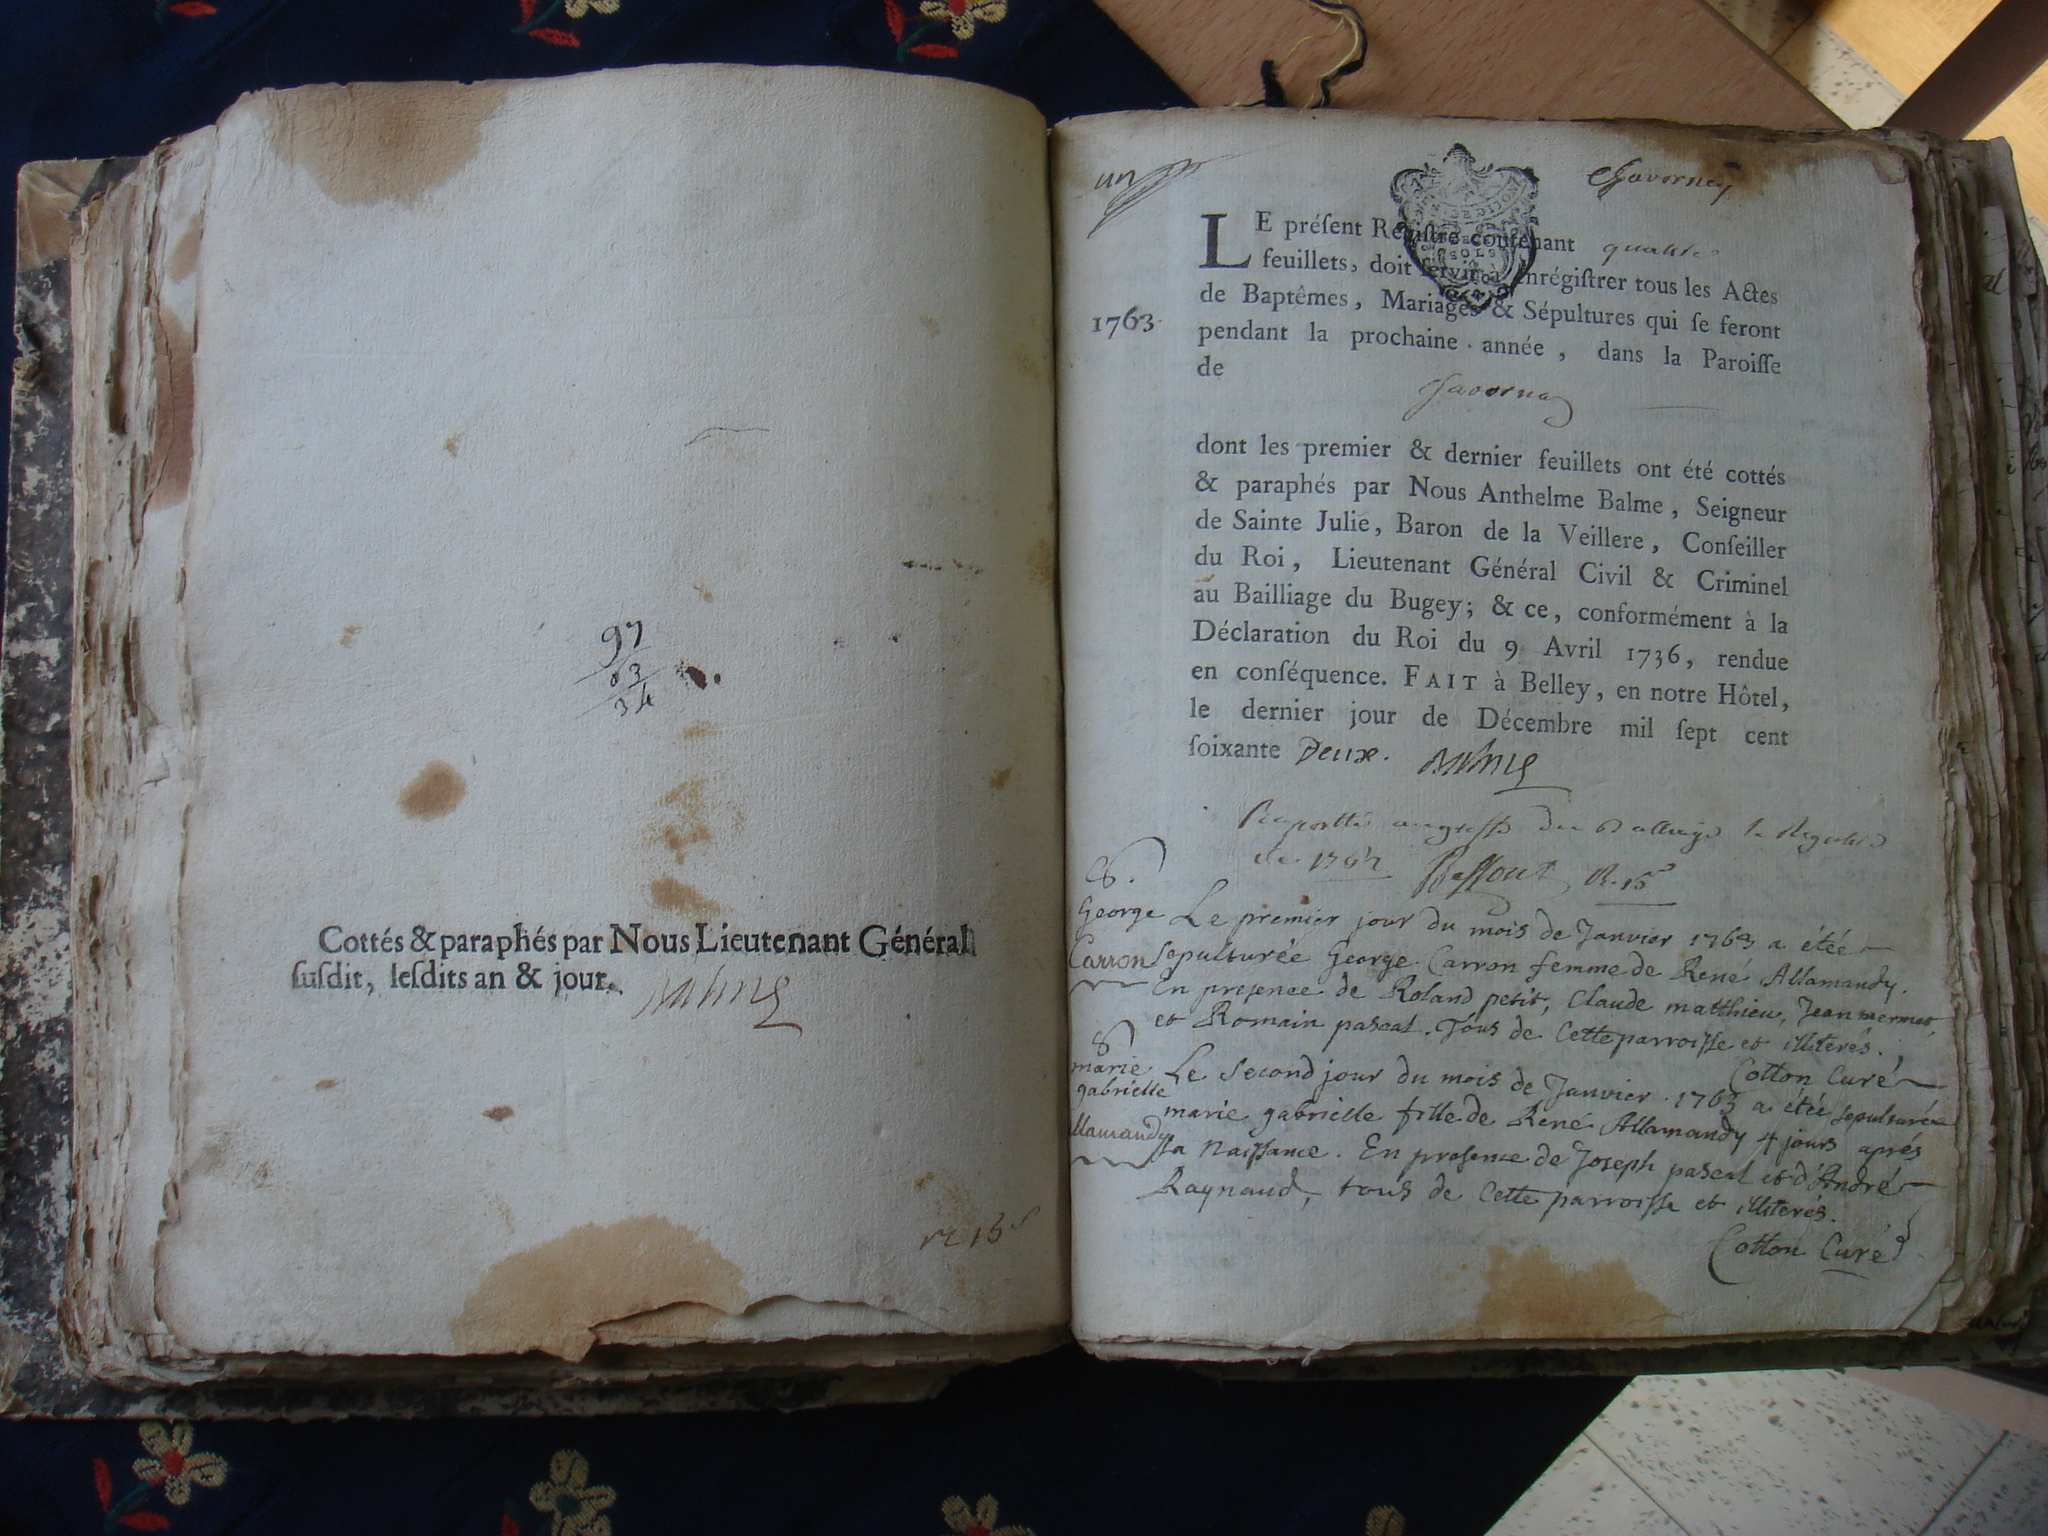 97
63
34
Cottés & paraphés par Nous Lieutenant Général
ſuſdit, leſdits an & jour.
Balme
R 15ˢ
un
Chavorney
LE préſent Regiſtre contenant quatre
feuillets, doit ſervir à enrégiſtrer tous les Actes
de Baptêmes, Mariages & Sépultures qui ſe feront
1763
pendant la prochaine année, dans la Paroiſſe
de
Chavornay
dont les premier & dernier feuillets ont été cottés
& paraphés par Nous Anthelme Balme, Seigneur
de Sainte Julie, Baron de la Veillere, Conſeiller
du Roi, Lieutenant Général Civil & Criminel
au Bailliage du Bugey; & ce, conformément à la
Déclaration du Roi du 9 Avril 1736, rendue
en conſéquence. FAIT à Belley, en notre Hôtel,
le dernier jour de Décembre mil ſept cent
ſoixante Deux. Balme
au greffe du le
de R. 15ˢ
S.
George
Carron
Le premier jour du mois de Janvier 1763 a étée
sepulturée George Carron femme de René Allamandy.
En presence de Roland petit, Claude matthieu, Jean mermet,
et Romain pascal. Tous de Cette parroisse et illiterés.
Cotton Curé
S
marie
gabrielle
llamandy
Le Second jour du mois de Janvier 1763 a étée sepulturée
marie gabrielle fille de René Allamandy 4 jours aprés
sa Naissance. En presence de Joseph pascal et d'André
Raynaud, tous de Cette parroisse et illiterés.
Cotton Curé